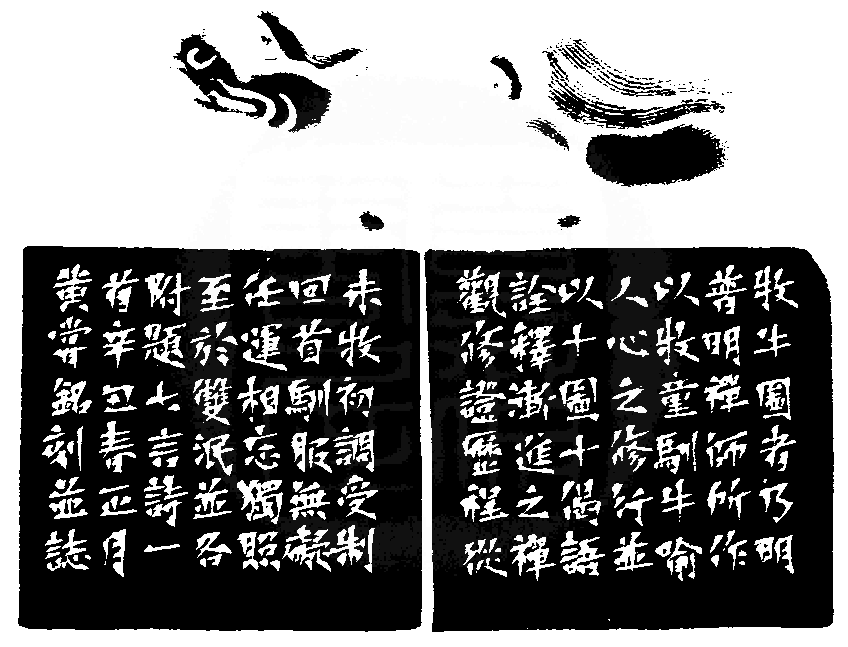 牧牛圖者乃明
普明禪師所作
以牧童馴牛喻
人心之修行並
以十圖十偈語
詮釋漸進之禪
觀修證歷程從
未牧初調受制
回首馴服無礙
任運相忘獨照
至於雙泯並各
附題七言詩一
首辛丑春正月
黃嘗銘刻並誌